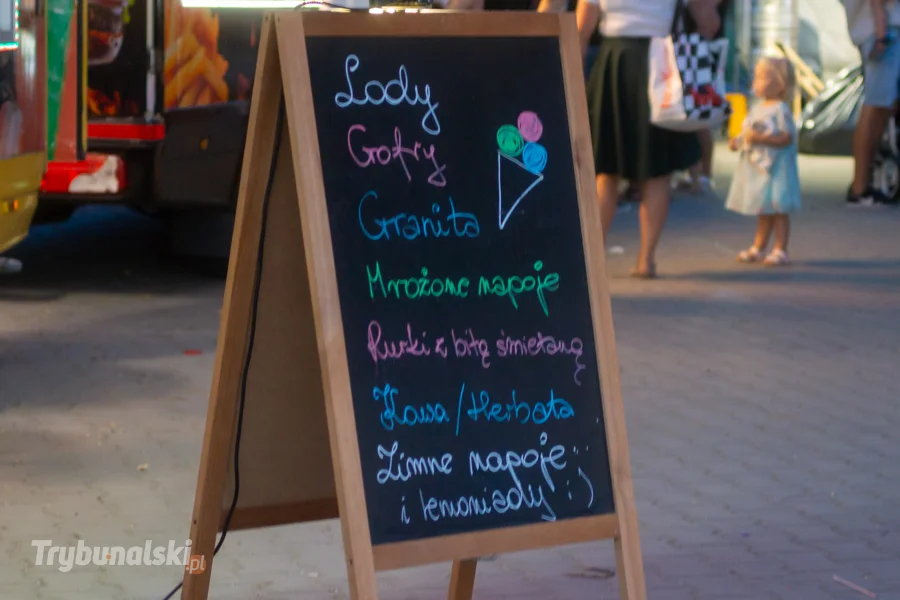 Lody
Gofry
Granita
Mrożone napoje
Rurki z bitą śmietaną
Kawa / Herbata
Zimne napoje
i lemoniady :)
Trybunalski.pl